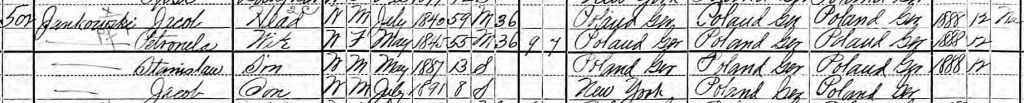 502 Jankowski Jacob Head W M July 1840 59 M 36 Poland Ger Poland Ger Poland Ger 1888 12 Na
Petronela Wife W F May 1845 55 M 36 9 7 Poland Ger Poland Ger Poland Ger 1888 12
— Stanislaw Son W M May 1887 13 S Poland Ger Poland Ger Poland Ger 1888 12
— Jacob Son W M July 1891 8 S New York Poland Ger Poland Ger